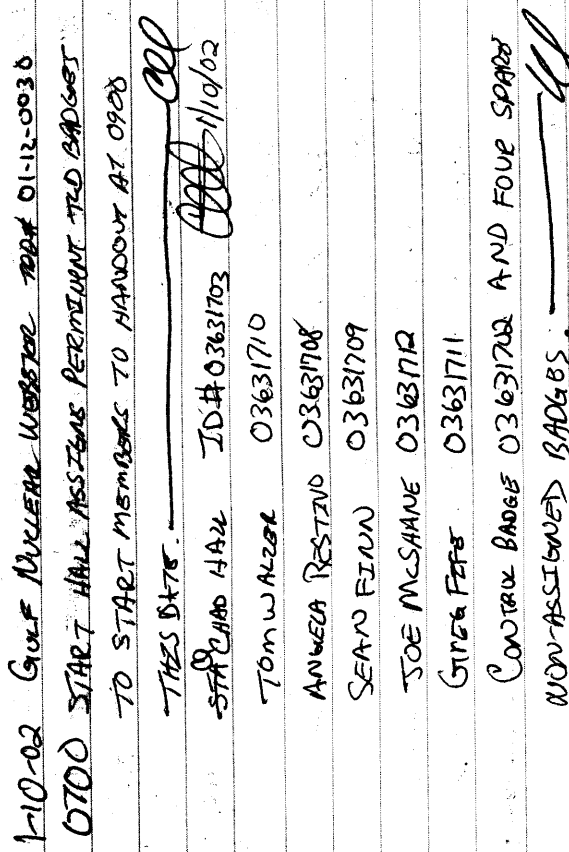 1-10-02 GULF NUCLEAR WEBSTER TDD# 01-12-0030
0700 START HALL ASSIGNS PERMINENT TLD BADGES
TO START MEMBERS TO HANDOUT AT 0900
THIS DATE.
CHAD HALL ID# 03631703 1/10/02
TOM WALZER 03631710
ANGELA RESTIVO 03631708
SEAN FINN 03631709
JOE MCSHANE 03631712
GREGG FIFE 03631711
CONTROL BADGE 03631702 AND FOUR SPARE
NON-ASSIGNED BADGES.